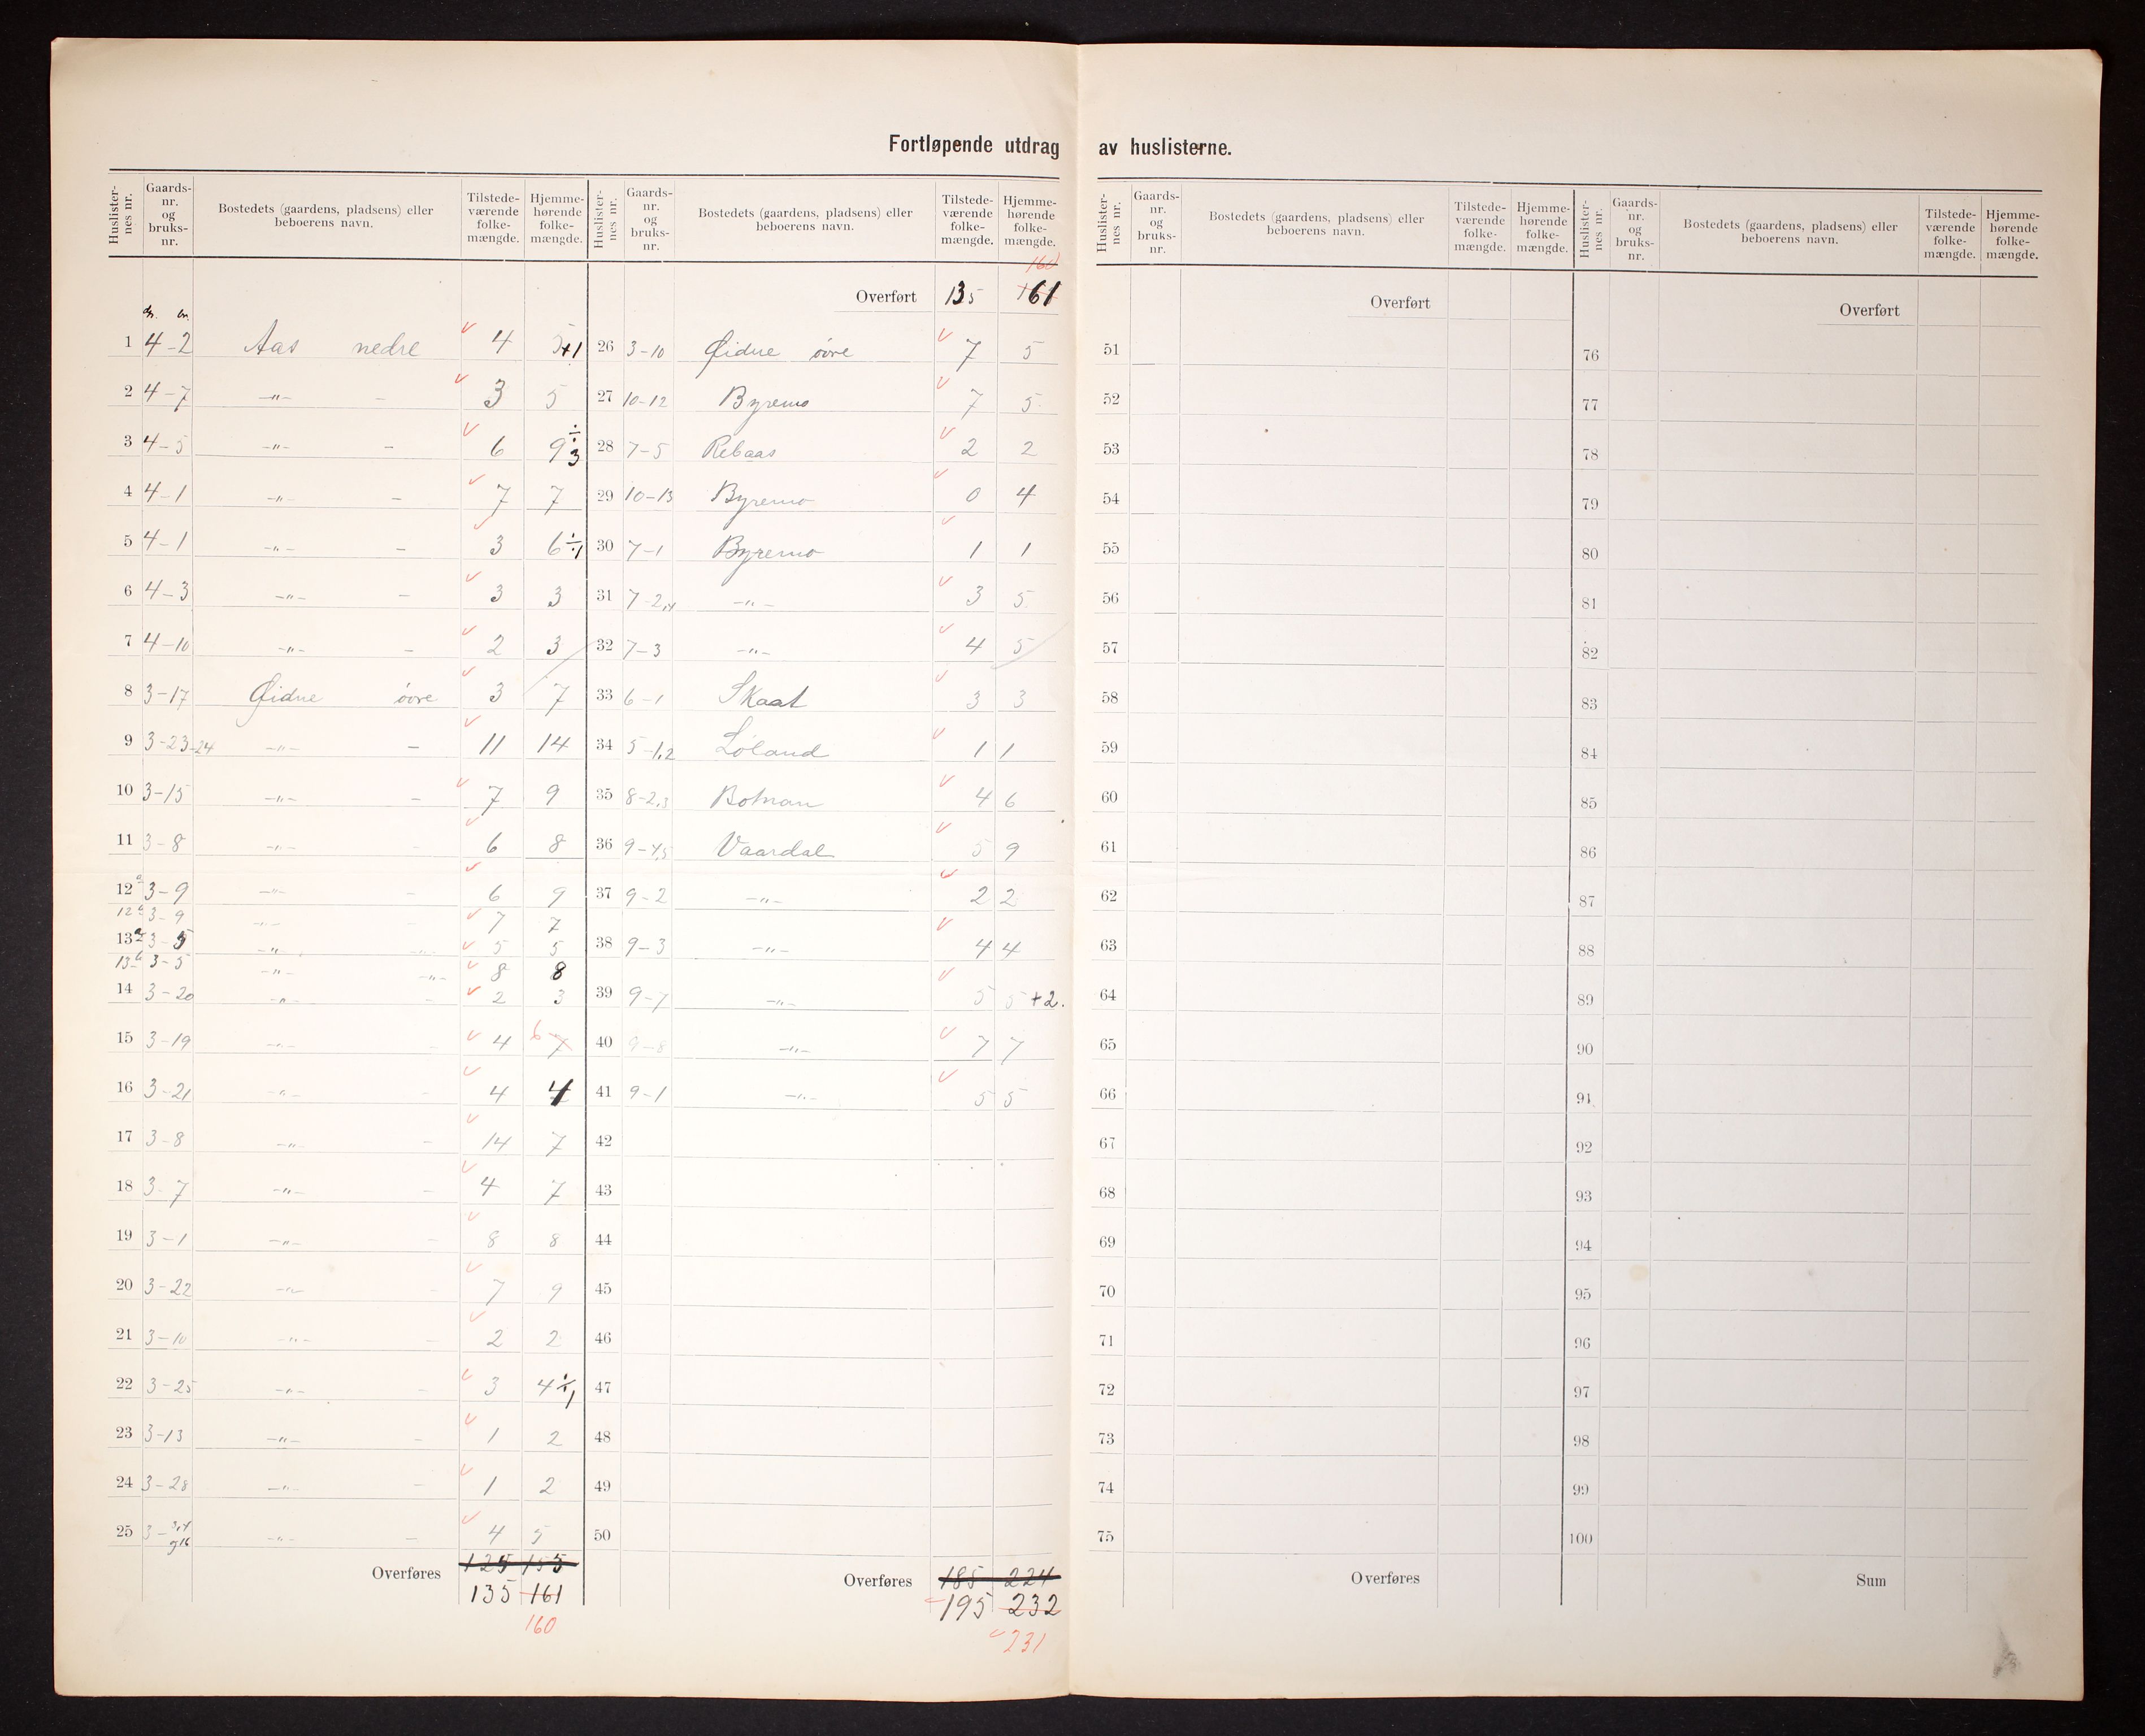 Fortløpende utdrag av huslisterne.
Huslister-nes nr. Gaards-nr. og bruks-nr. Bostedets (gaardens, pladsens) eller beboerens navn. Tilstede-værende folke-mængde. Hjemme-hørende folke-mængde.
Huslister-nes nr. Gaards-nr. og bruks-nr. Bostedets (gaardens, pladsens) eller beboerens navn. Tilstede-værende folke-mængde. Hjemme-hørende folke-mængde.
gn. bn.
1 4-2 Aas nedre 4 5+1
2 4-7 -"- - 3 5
3 4-5 -"- - 6 9÷3
4 4-1 -"- - 7 7
5 4-1 -"- - 3 6÷1
6 4-3 -"- - 3 3
7 4-10 -"- - 2 3
8 3-17 Øidne øvre 3 7
9 3-23-24 -"- - 11 14
10 3-15 -"- - 7 9
11 3-8 -"- - 6 8
12a 3-9 -"- - 6 9
12b 3-9 -"- - 7 7
13a 3-5 -"- -"- 5 5
13b 3-5 -"- -"- 8 8
14 3-20 -"- - 2 3
15 3-19 -"- - 4 6 7
16 3-21 -"- - 4 4
17 3-8 -"- - 14 7
18 3-7 -"- - 4 7
19 3-1 -"- - 8 8
20 3-22 -"- - 7 9
21 3-10 -"- - 2 2
22 3-25 -"- - 3 4÷1
23 3-13 -"- - 1 2
24 3-28 -"- - 1 2
25 3-3,4 og 16 -"- - 4 5
Overføres 125 155
135 161
160
160
Overført 135 161
26 3-10 Øidne øvre 7 5
27 10-12 Byremo 7 5
28 7-5 Rebaas 2 2
29 10-13 Byremo 0 4
30 7-1 Byremo 1 1
31 7-2,4 -"- 3 5
32 7-3 -"- 4 5
33 6-1 Skaat 3 3
34 5-1,2 Løland 1 1
35 8-2,3 Botnan 4 6
36 9-4,5 Vaardal 5 9
37 9-2 -"- 2 2
38 9-3 -"- 4 4
39 9-7 -"- 5 5+2.
40 9-8 -"- 7 7
41 9-1 -"- 5 5
42
43
44
45
46
47
48
49
50
Overføres 185 224
195 232
231
Huslister-nes nr. Gaards-nr. og bruks-nr. Bostedets (gaardens, pladsens) eller beboerens navn. Tilstede-værende folke-mængde. Hjemme-hørende folke-mængde.
Huslister-nes nr. Gaards-nr. og bruks-nr. Bostedets (gaardens, pladsens) eller beboerens navn. Tilstede-værende folke-mængde. Hjemme-hørende folke-mængde.
Overført
51
52
53
54
55
56
57
58
59
60
61
62
63
64
65
66
67
68
69
70
71
72
73
74
75
Overføres
Overført
76
77
78
79
80
81
82
83
84
85
86
87
88
89
90
91
92
93
94
95
96
97
98
99
100
Sum